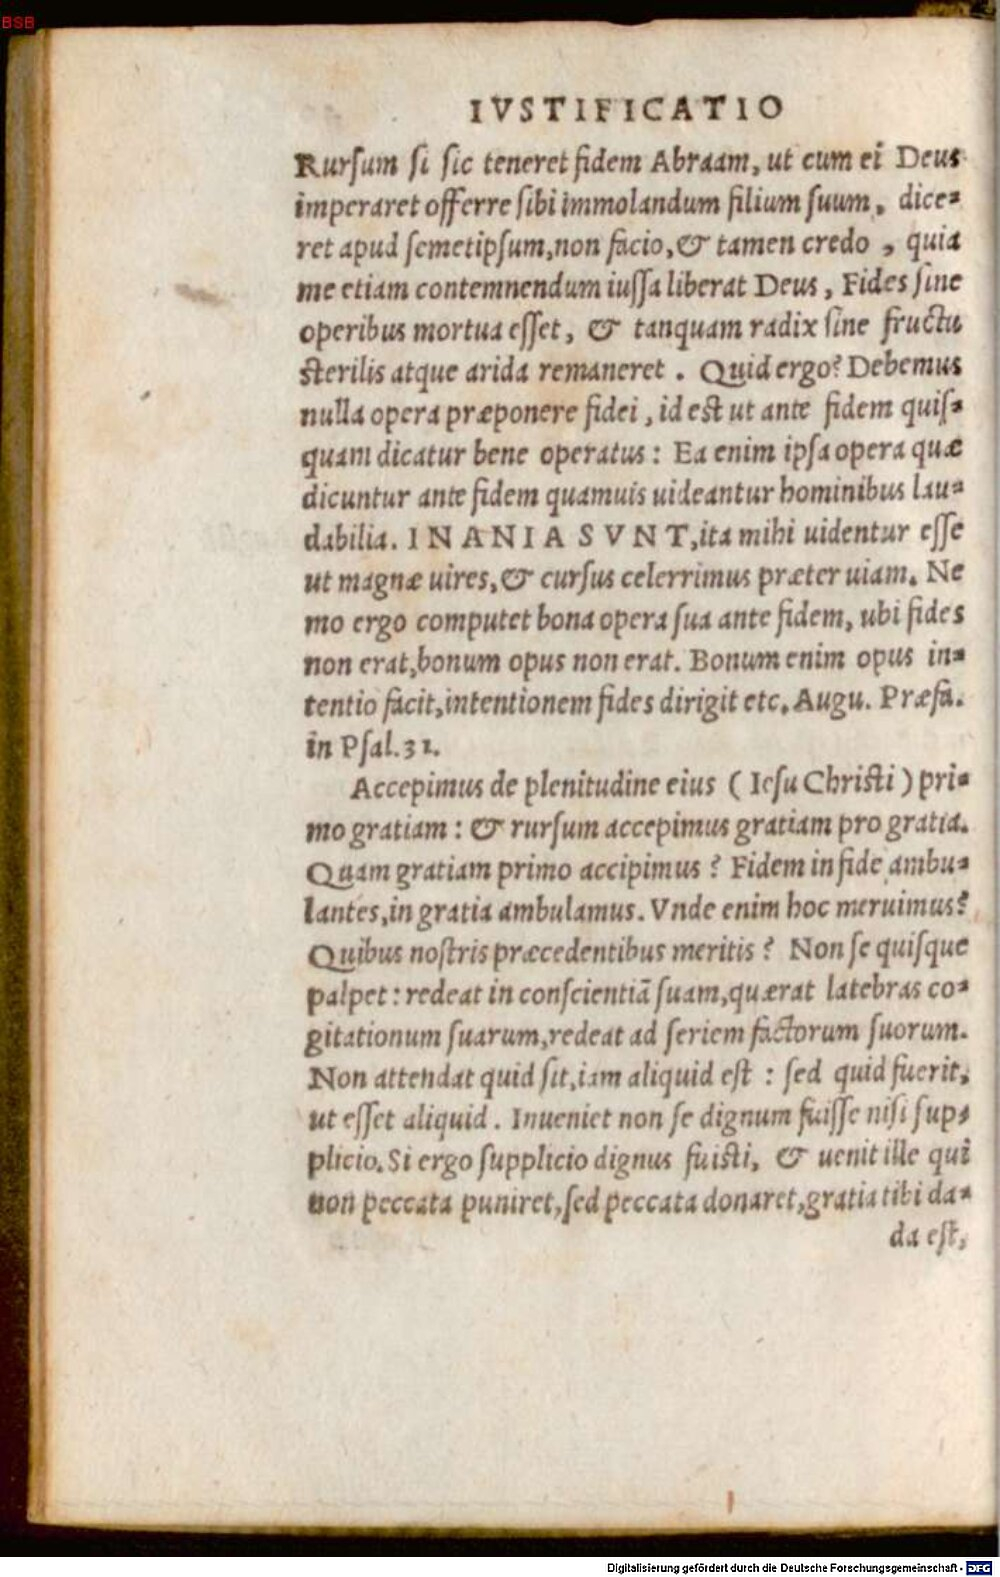 BSB
IVSTIFICATIO
Rurſum ſi ſic teneret fidem Abraam, ut cum ei Deus
imperaret offerre ſibi immolandum filium ſuum, dice=
ret apud ſemetipſum, non facio, & tamen credo, quia
me etiam contemnendum iuſſa liberat Deus, Fides ſine
operibus mortua eſſet, & tanquam radix ſine fructu
ſterilis atque arida remaneret. Quid ergo? Debemus
nulla opera præponere fidei, id eſt ut ante fidem quiſ=
quam dicatur bene operatus: Ea enim ipſa opera quæ
dicuntur ante fidem quamuis uideantur hominibus lau=
dabilia. INANIA SVNT, ita mihi uidentur eſſe
ut magnæ uires, & curſus celerrimus præter uiam. Ne
mo ergo computet bona opera ſua ante fidem, ubi fides
non erat, bonum opus non erat. Bonum enim opus in=
tentio facit, intentionem fides dirigit etc. Augu. Præfa.
in Pſal. 31.
Accepimus de plenitudine eius (Ieſu Chriſti) pri=
mo gratiam: & rurſum accepimus gratiam pro gratia.
Quam gratiam primo accipimus? Fidem in fide ambu=
lantes, in gratia ambulamus. Vnde enim hoc meruimus?
Quibus noſtris præcedentibus meritis? Non ſe quiſque
palpet: redeat in conſcientiã ſuam, quærat latebras co=
gitationum ſuarum, redeat ad ſeriem factorum ſuorum.
Non attendat quid ſit, iam aliquid eſt: ſed quid fuerit,
ut eſſet aliquid. Inueniet non ſe dignum fuiſſe niſi ſup=
plicio. Si ergo ſupplicio dignus fuiſti, & uenit ille qui
non peccata puniret, ſed peccata donaret, gratia tibi da=
da eſt,
Digitalisierung gefördert durch die Deutsche Forschungsgemeinschaft - DFG